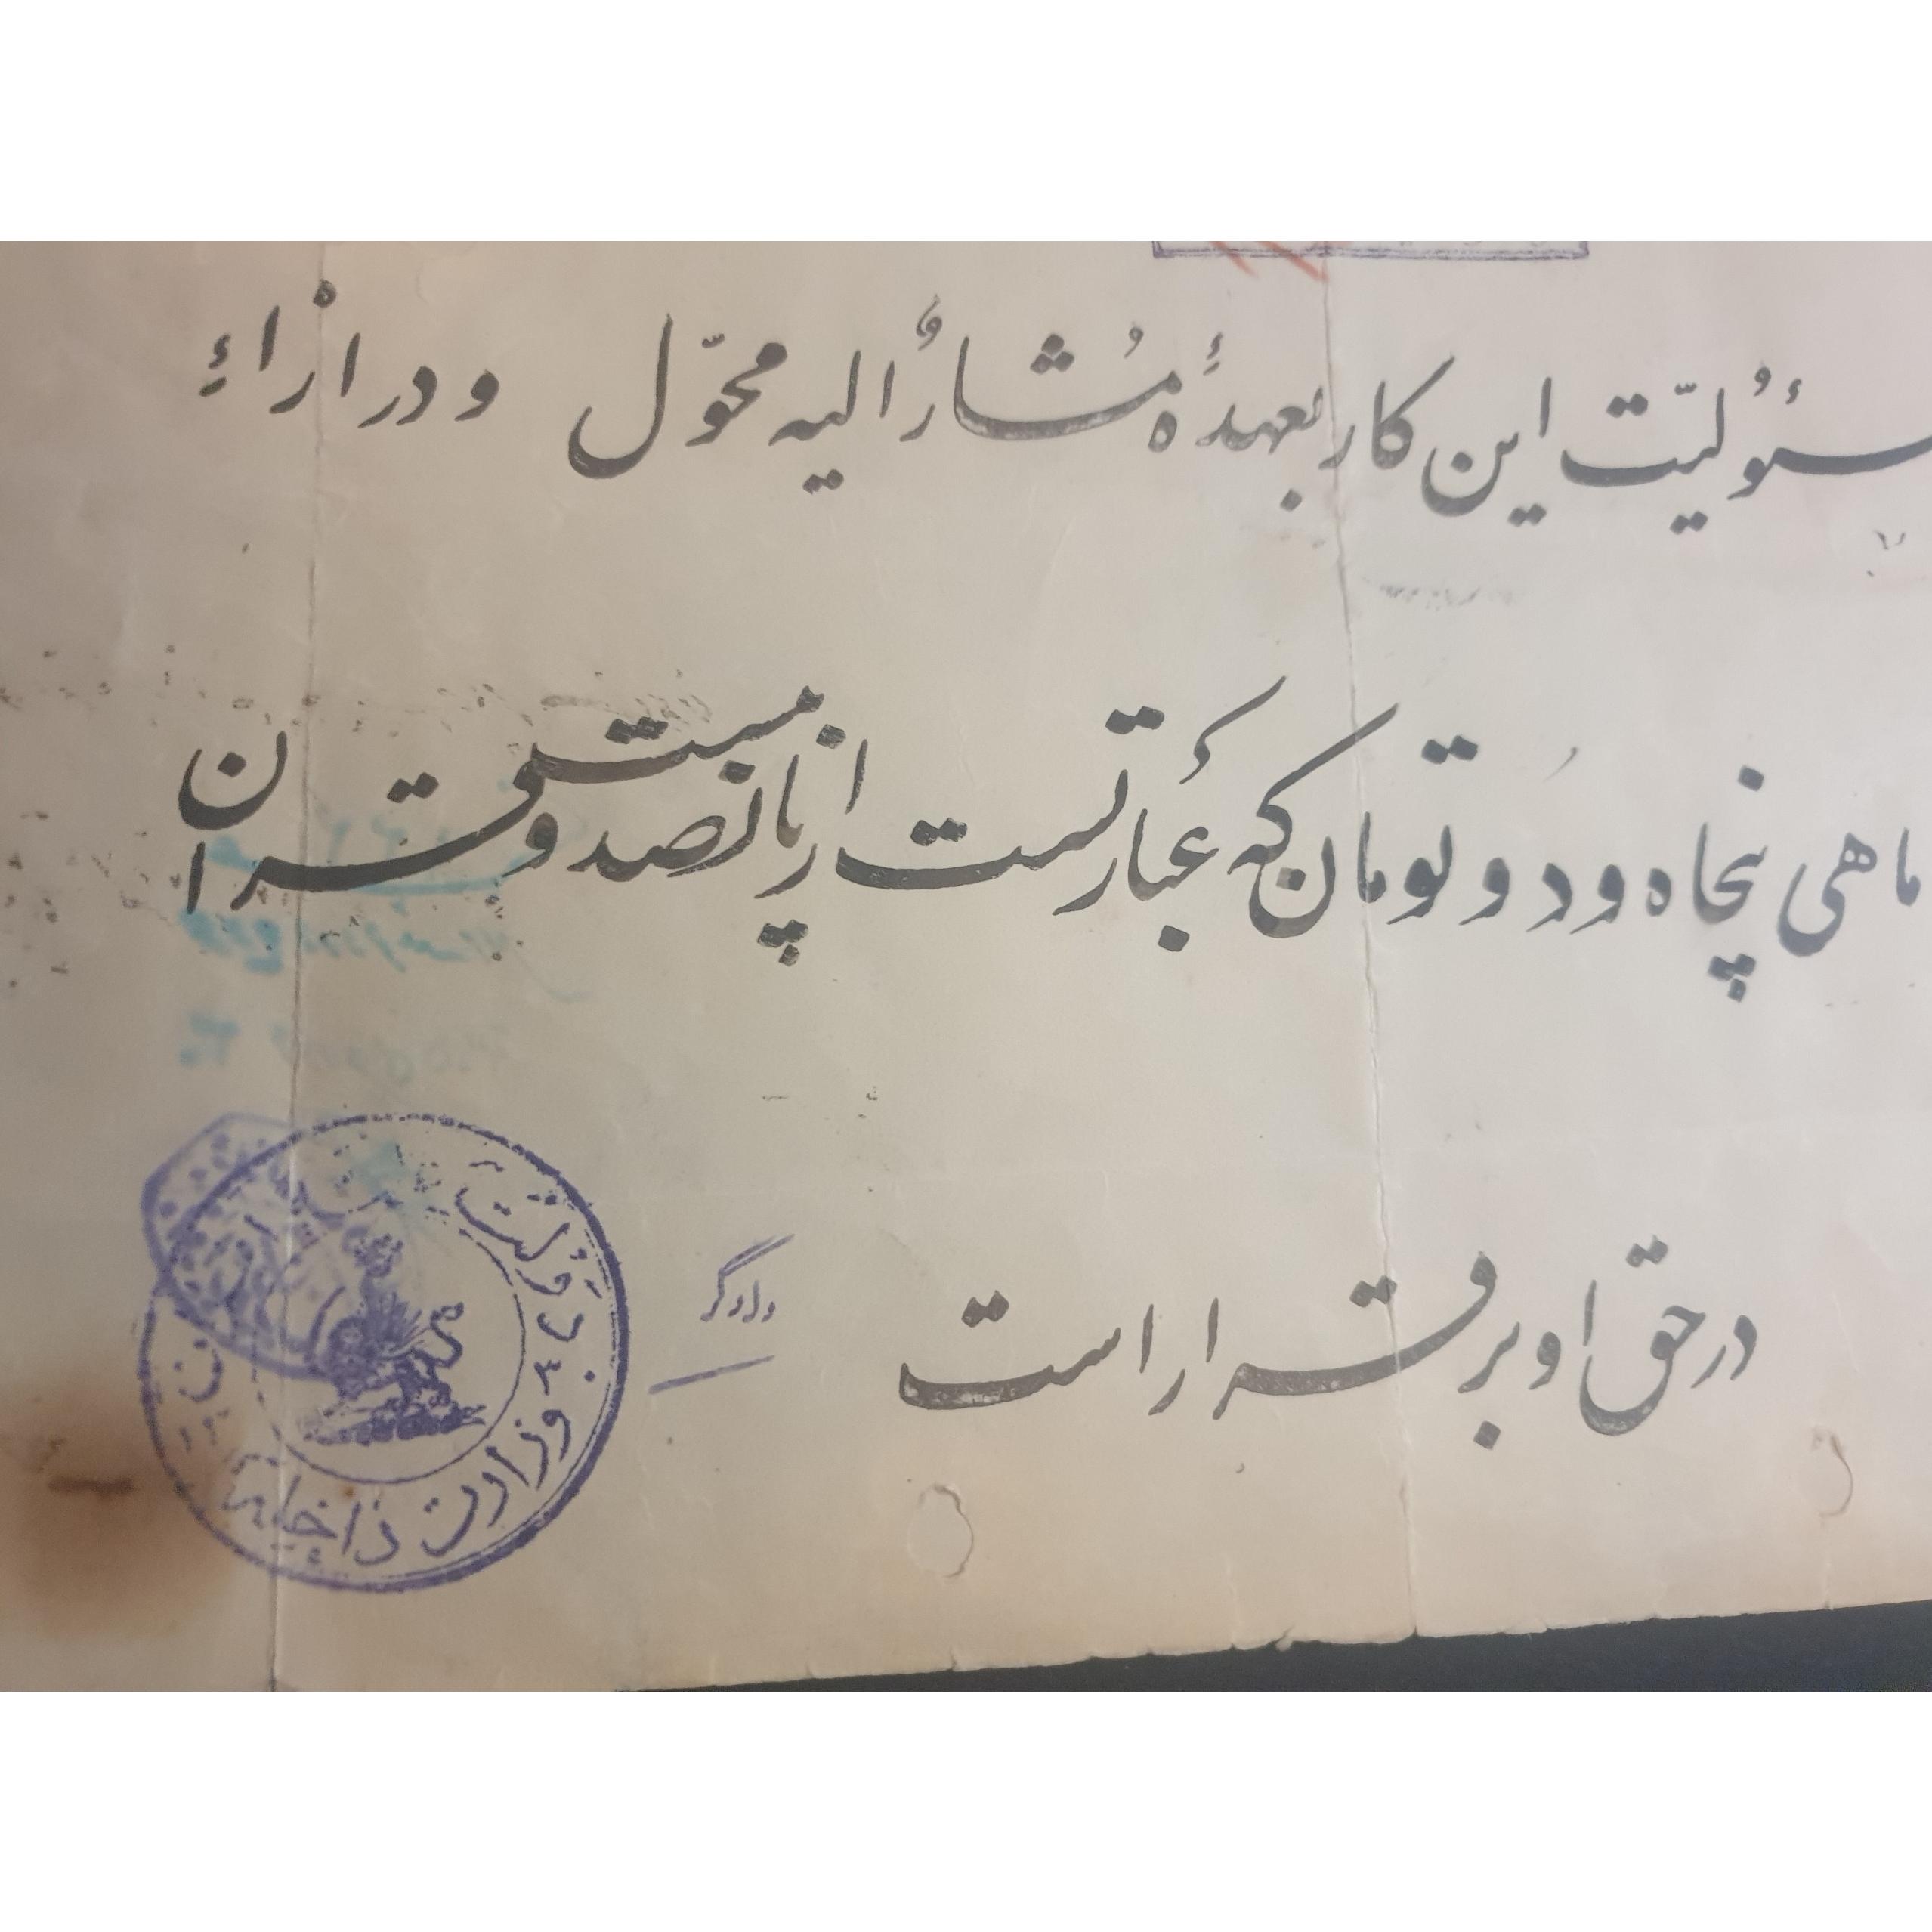 سئولیّت این کار بعهدهٔ مُشارٌ الیه محوّل و در ازاءِ
ماهی پنجاه و دو تومان که عبارتست از پانصد و بیست قران
در حقّ او برقرار است
دادگر
دولت
وزارت داخله